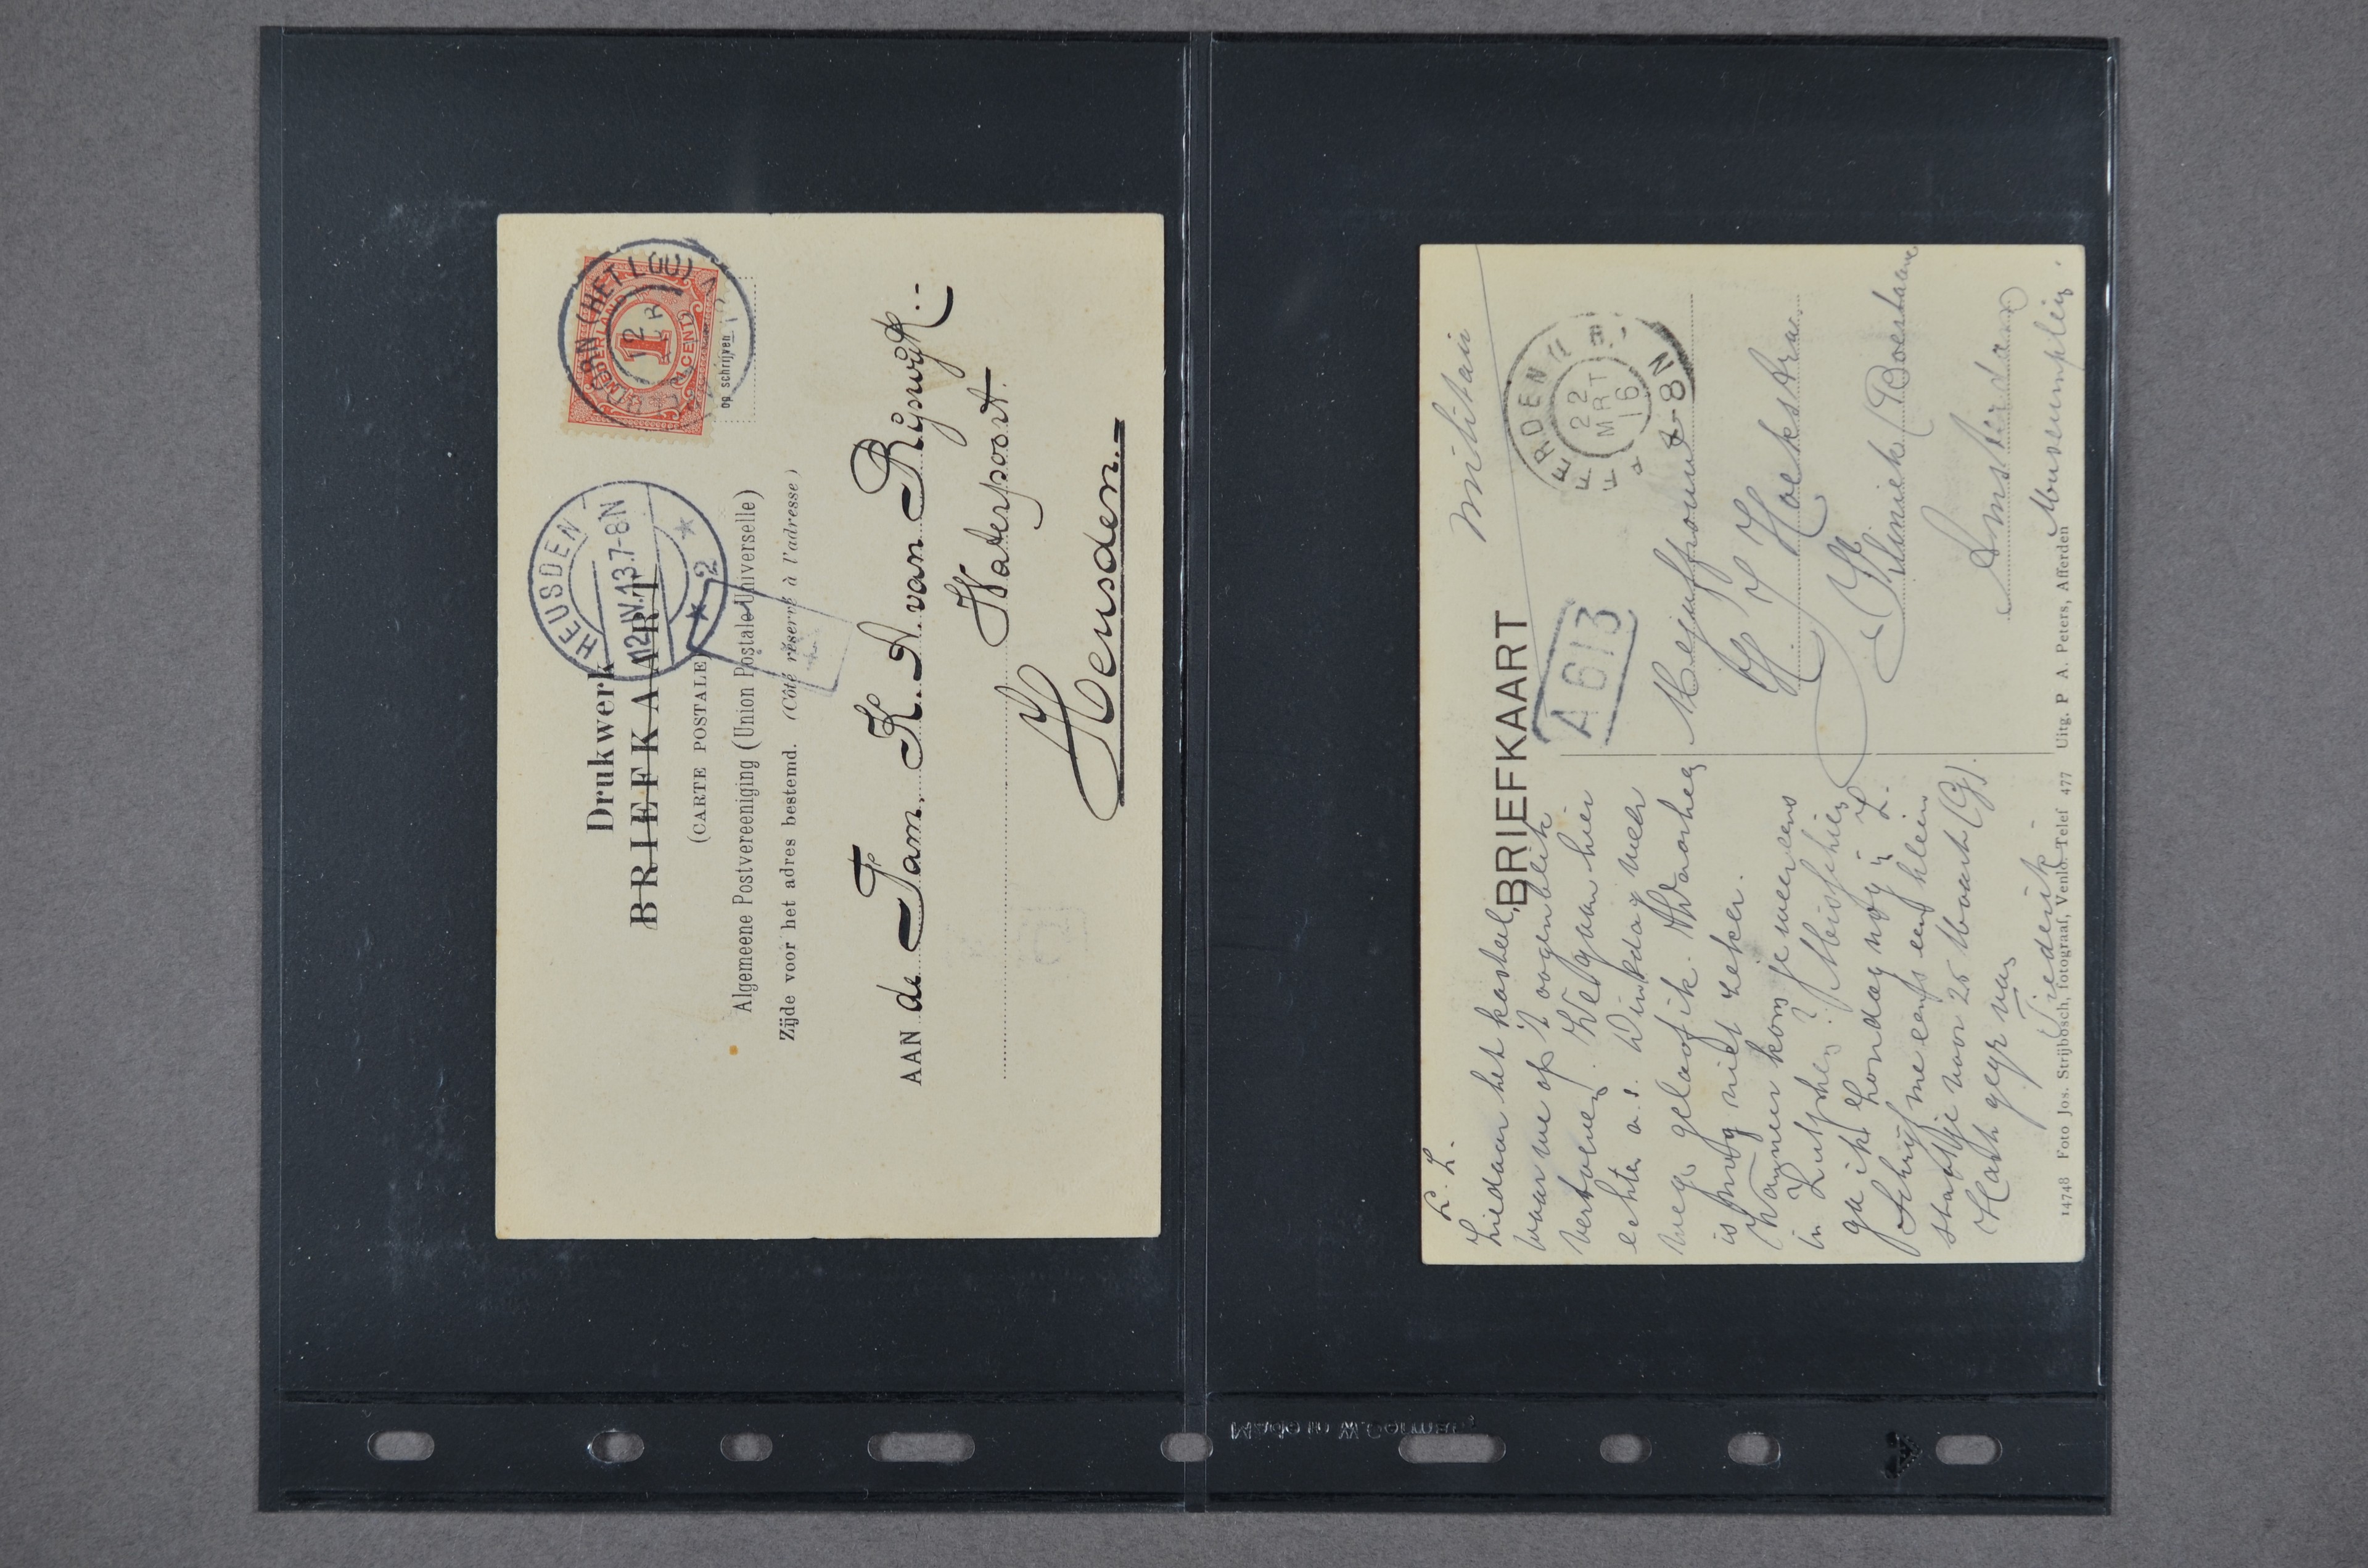 Drukwerk
BRIEFKAART
(CARTE POSTALE)
Algemeene Postvereeniging (Union Postale Universelle)
Zijde voor het adres bestemd. (Côté réservé à l'adresse)
HEUSDEN
12.IV.13.7-8N
2
(HET LOO)
NEDERLAND
1
CENT
op schrijven
AAN de Fam. K. A. van Rijswijk.
Waterpoort.
Heusden.
militair
BRIEFKAART
A613
22
MRT
16
7-8N
L. Z.
Ziedaar het kasteel,
waar we op 't oogenblik
vertoeven. We gaan hier
echter a.s. Dinsdag weer
weg geloof ik. Waarheen
is nog niet zeker.
Wanneer kom je weer eens
in Zutphen? Misschien
ga ik Zondag nog
Schrijf me eens een klein
voor 26 Maart
van
Diederik
Mejuffrouw
H. J. Hoekstra
Amsterdam
Museumplein.
14748 Foto Jos. Strijbosch, fotograaf, Venlo. Telef 477 Uitg. P A. Peters, Afferden